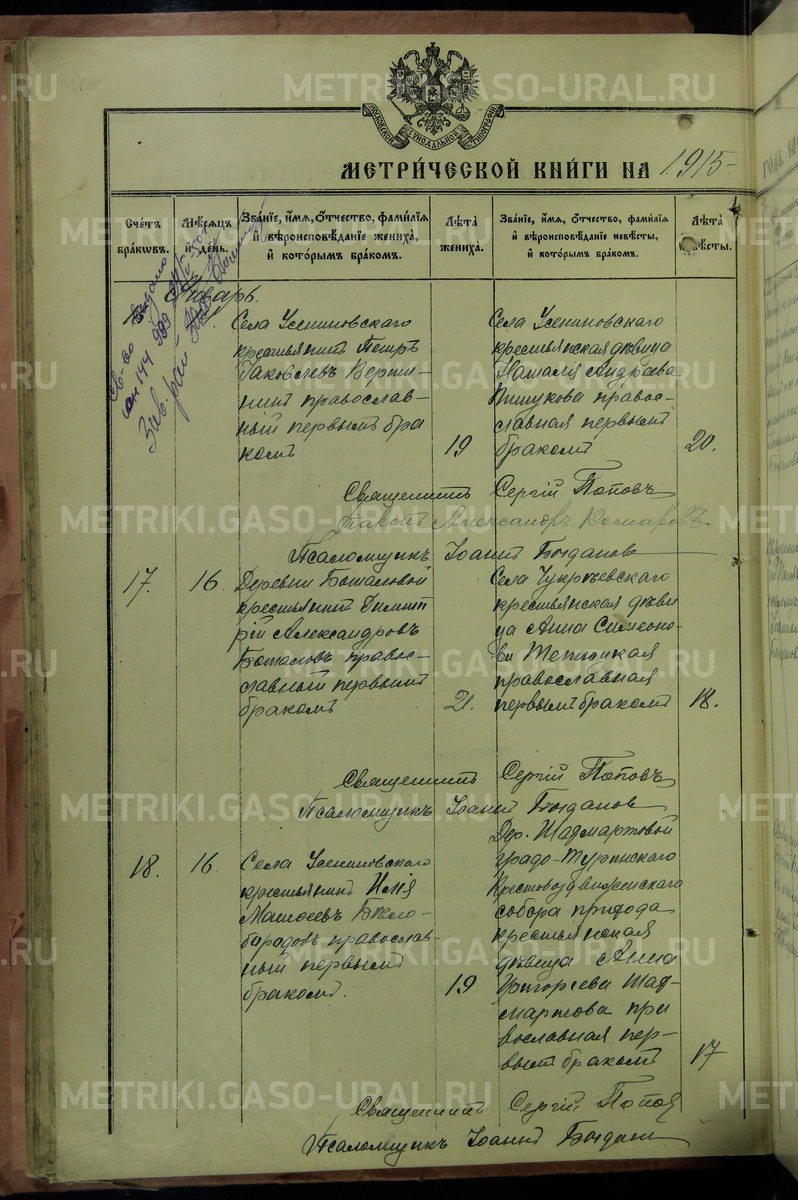 МОСКОВСКОЙ СѴНОДАЛЬНОЙ ТИПОГРАФІИ
МЕТРИ́ЧЕСКОЙ КНИ́ГИ НА 1915
Сче́тъ бра́ковъ.
Мѣ́сяцъ и҆ де́нь.
Зва́нїе, и҆́мя, ѻ҆́тчество, фами́лїя и҆ вѣроисповѣ́данїе жениха̀, и҆ кото́рымъ бра́комъ.
Лѣ́та жениха̀.
Зва́нїе, и҆́мя, ѻ҆́тчество, фами́лїя и҆ вѣроисповѣ́данїе невѣ́сты, и҆ кото́рымъ бра́комъ.
Лѣ́та невѣ́сты.
Январь.
Св-во выдано
Зав. рай
Села Усениновскаго
крестьянинъ Петръ
Іаковлевъ Верши-
нинъ православ-
ный первымъ бра
комъ
19
Села Усениновскаго
крестьянская дѣвица
Наталія Андреева
Пишукова право-
славная первымъ
бракомъ
20.
Священникъ Сергій Поповъ
Діаконъ Александръ Комаровъ
Псаломщикъ Іоаннъ Богданов
17.
16
Деревни Боталовой
крестьянинъ Димит
рій Александровъ
Боталовъ право-
славный первымъ
бракомъ
21.
Села Чукреевскаго
крестьянская дѣви
ца Анна Симеоно-
ва
православная
первымъ бракомъ
18.
Священникъ Сергій Поповъ
Псаломщикъ Іоаннъ Богданов
18.
16
Села Усениновскаго
крестьянинъ Илія
Матѳеевъ Бѣло-
бородовъ православ-
ный первымъ
бракомъ.
19
Дер. Шадмартовой
градо-Туринскаго
Крестовоздвиженскаго
собора прихода
крестьянская
дѣвица Анна
Григорьева Шад-
мартова пра
вославная пер-
вымъ бракомъ
17
Священникъ Сергій Попов
Псаломщикъ Іоаннъ Богданов
METRIKI.GASO-URAL.RU